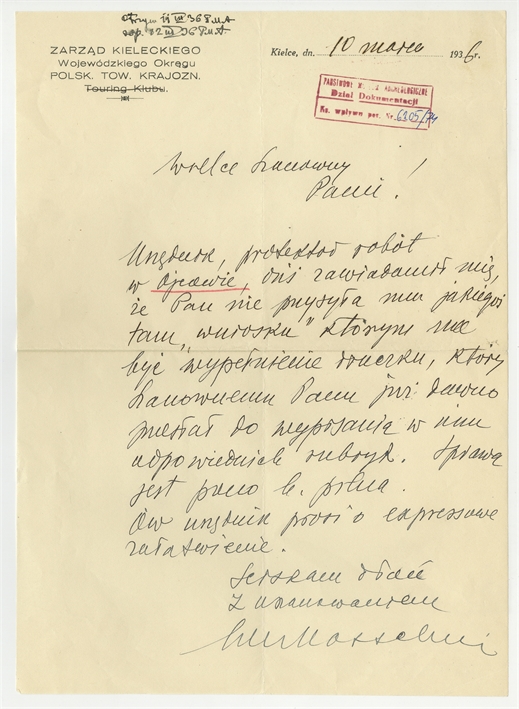 otrzym. 11 III 36 P.M.A.
odp. 12 III 36 P.M.A.
ZARZĄD KIELECKIEGO
Wojewódzkiego Okręgu
POLSK. TOW. KRAJOZN.
Touring Klubu.
Kielce, dn. 10 marca 1936 r.
PAŃSTWOWE MUZEUM ARCHEOLOGICZNE
Dział Dokumentacji
Ks. wpływu poz. Nr. 6305/74
Wielce Szanowny
Panie!
Urzędnik, protektor robót
w Opcowie, dziś zawiadamił mię,
że Pan nie przysyła mu jakiegoś
tam „wniosku” którym ma
być wypełnienie druczku, który
Szanownemu Panu już dawno
przesłał do wypisania w nim
odpowiednich rubryk. Sprawa
jest pono b. pilna.
Ów urzędnik prosi o expressowe
załatwienie.
Ściskam dłoń
z uszanowaniem